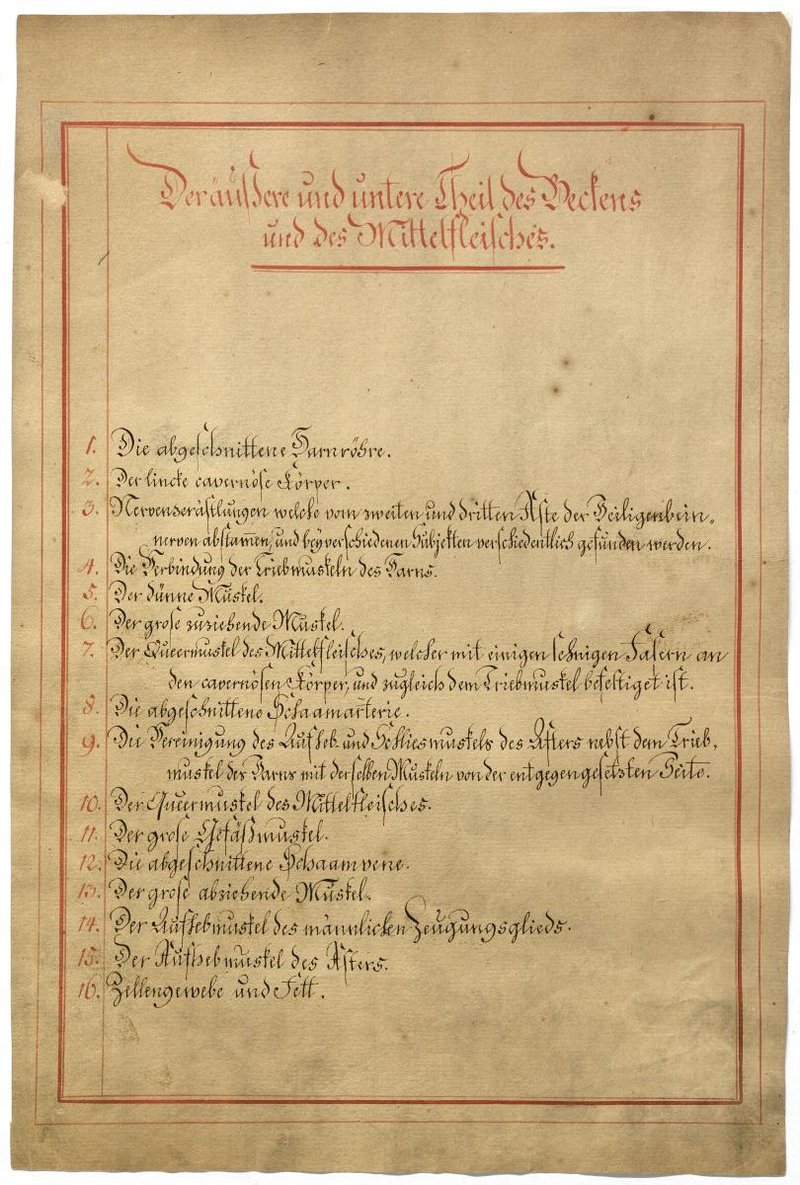 Der äußere und untere Theil des Beckens
und des Mittelfleisches.
1. Die abgeschnittene Harnröhre.
2. Der lincke cavernöse Körper.
3. Nervenzerästlungen welche vom zweiten und dritten Äste der Heiligenbein„
nerven abstamen, und bey verschiedenen Subjekten verschiedentlich gefunden werden.
4. Die Verbindung der Triebmuskeln des Harns.
5. Der dünne Muskel.
6. Der grose zuziehende Muskel.
7. Der Queermuskel des Mittelfleisches, welcher mit einigen sehnigen Fasern an
den cavernösen Körper, und zugleich dem Triebmuskel befestiget ist.
8. Die abgeschnittene Schaamarterie.
9. Die Vereinigung des Aufheb und Schliesmuskels des Afters nebst dem Trieb„
muskel des Harns mit derselben Muskeln von der entgegengesetzten Seite.
10. Der Queermuskel des Mittelfleisches.
11. Der grose Gefäßmuskel.
12. Die abgeschnittene Schaamvene.
13. Der grose abziehende Muskel.
14. Der Aufhebmuskel des männlichen Zeugungsglieds.
15. Der Aufhebmuskel des Afters.
16. Zellengewebe und Fett.